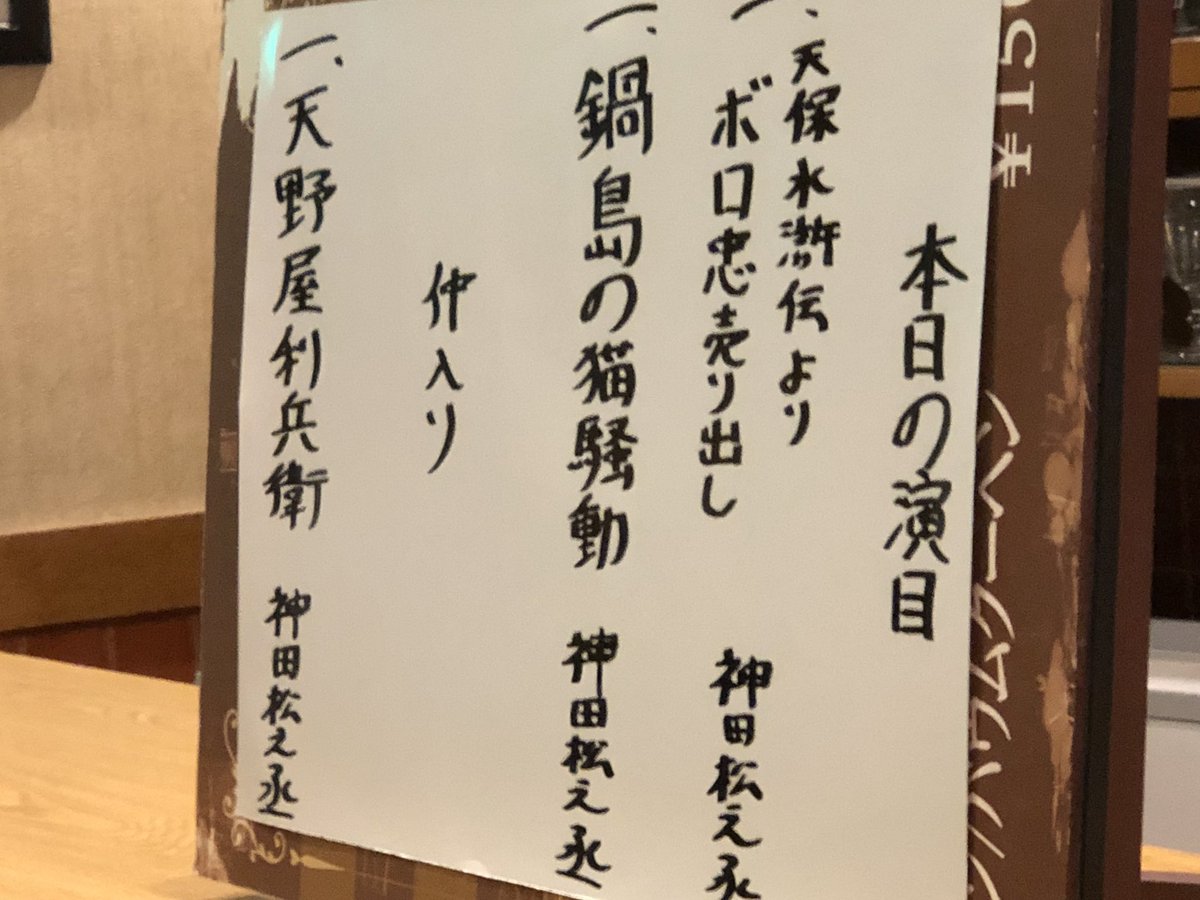 本日の演目
一、天保水滸伝より
ボロ忠売り出し 神田松之丞
一、鍋島の猫騒動 神田松之丞
仲入り
一、天野屋利兵衛 神田松之丞